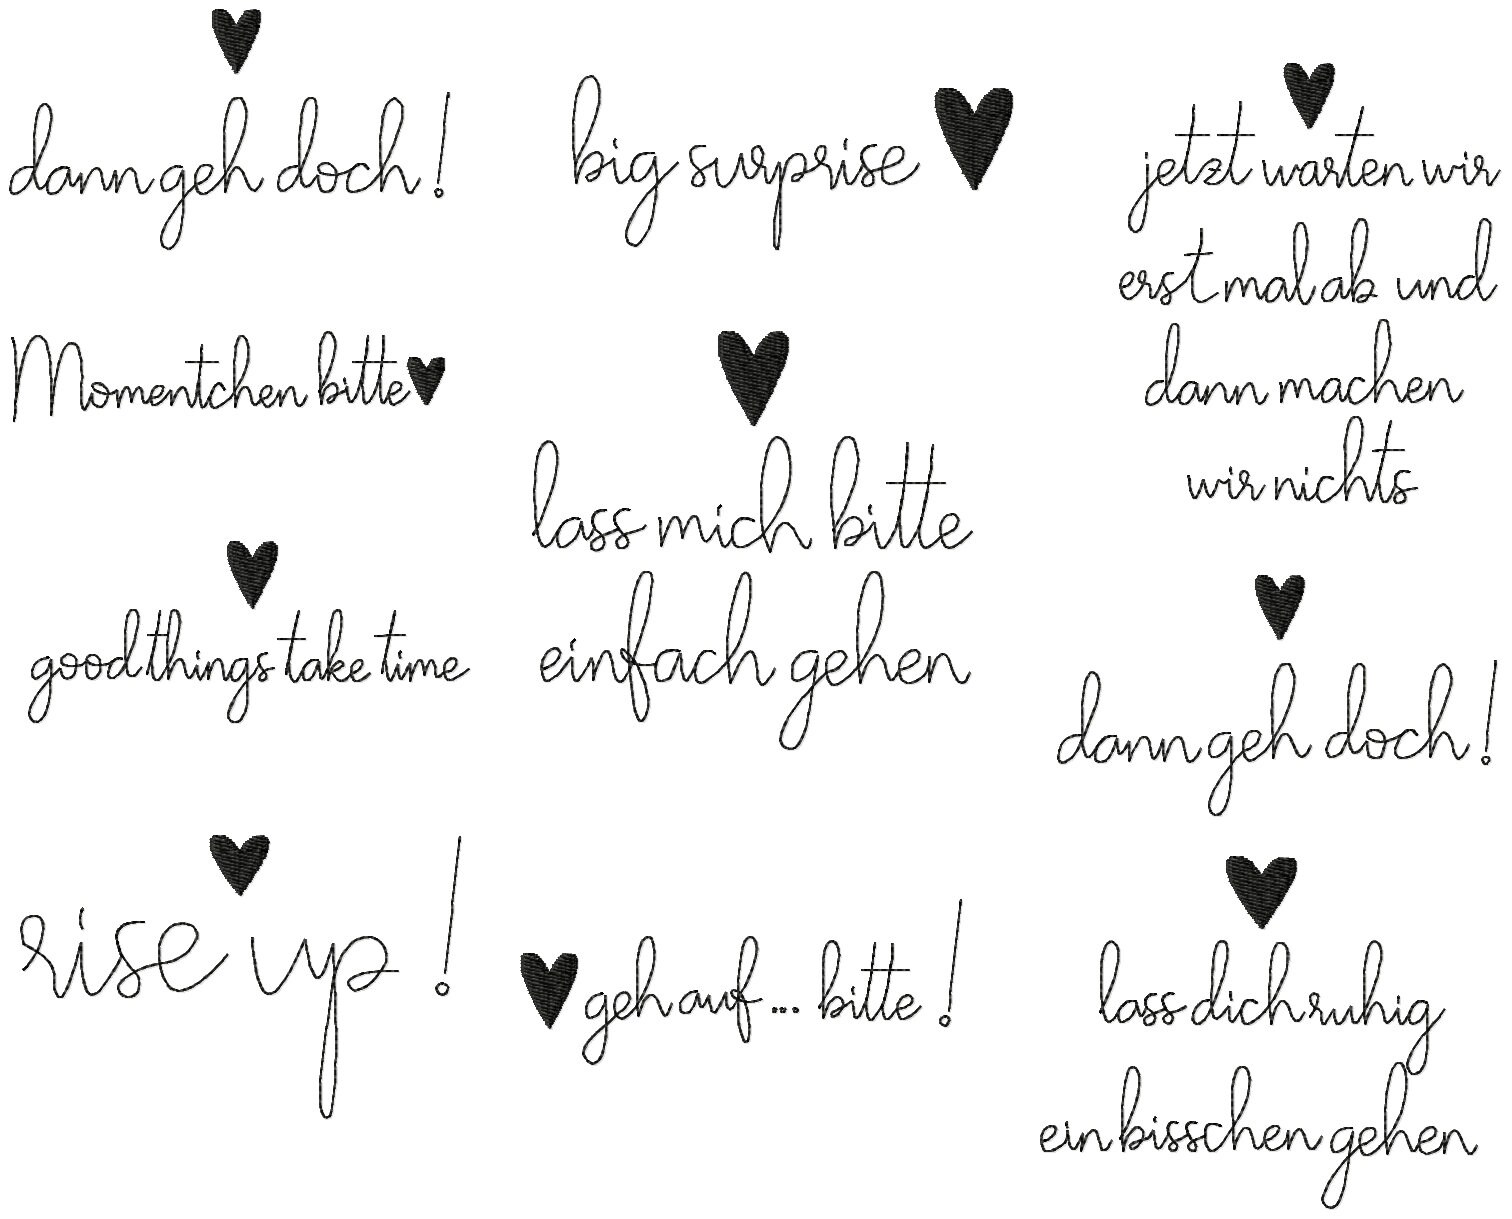 dann geh doch!
Momentchen bitte
good things take time
rise up!
big surprise
lass mich bitte
einfach gehen
geh auf... bitte!
jetzt warten wir
erst mal ab und
dann machen
wir nichts
dann geh doch!
lass dich ruhig
ein bisschen gehen